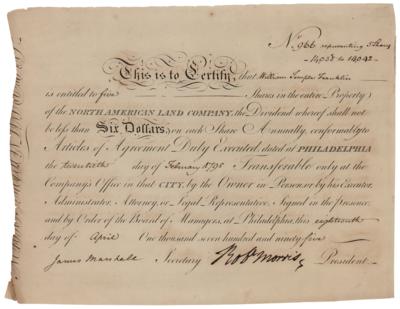 No. 966 representing 5 Shares
14038 to 14042
This is to Certify, that William Temple Franklin
is entitled to five Shares in the entire Property
of the NORTH AMERICAN LAND COMPANY, the Dividend whereof shall not
be less than Six Dollars, on each Share Annually, conformably to
Articles of Agreement Duly Executed, dated at PHILADELPHIA
the twentieth day of February 1795 Transferable only at the
Company's Office in that CITY, by the Owner in Person, or by his Executor,
Administrator, Attorney, or Legal Representative, Signed in the Presence
and by Order of the Board of Managers, at Philadelphia, this eighteenth
day of April One thousand seven hundred and ninety five
James Marshall Secretary Robt Morris President